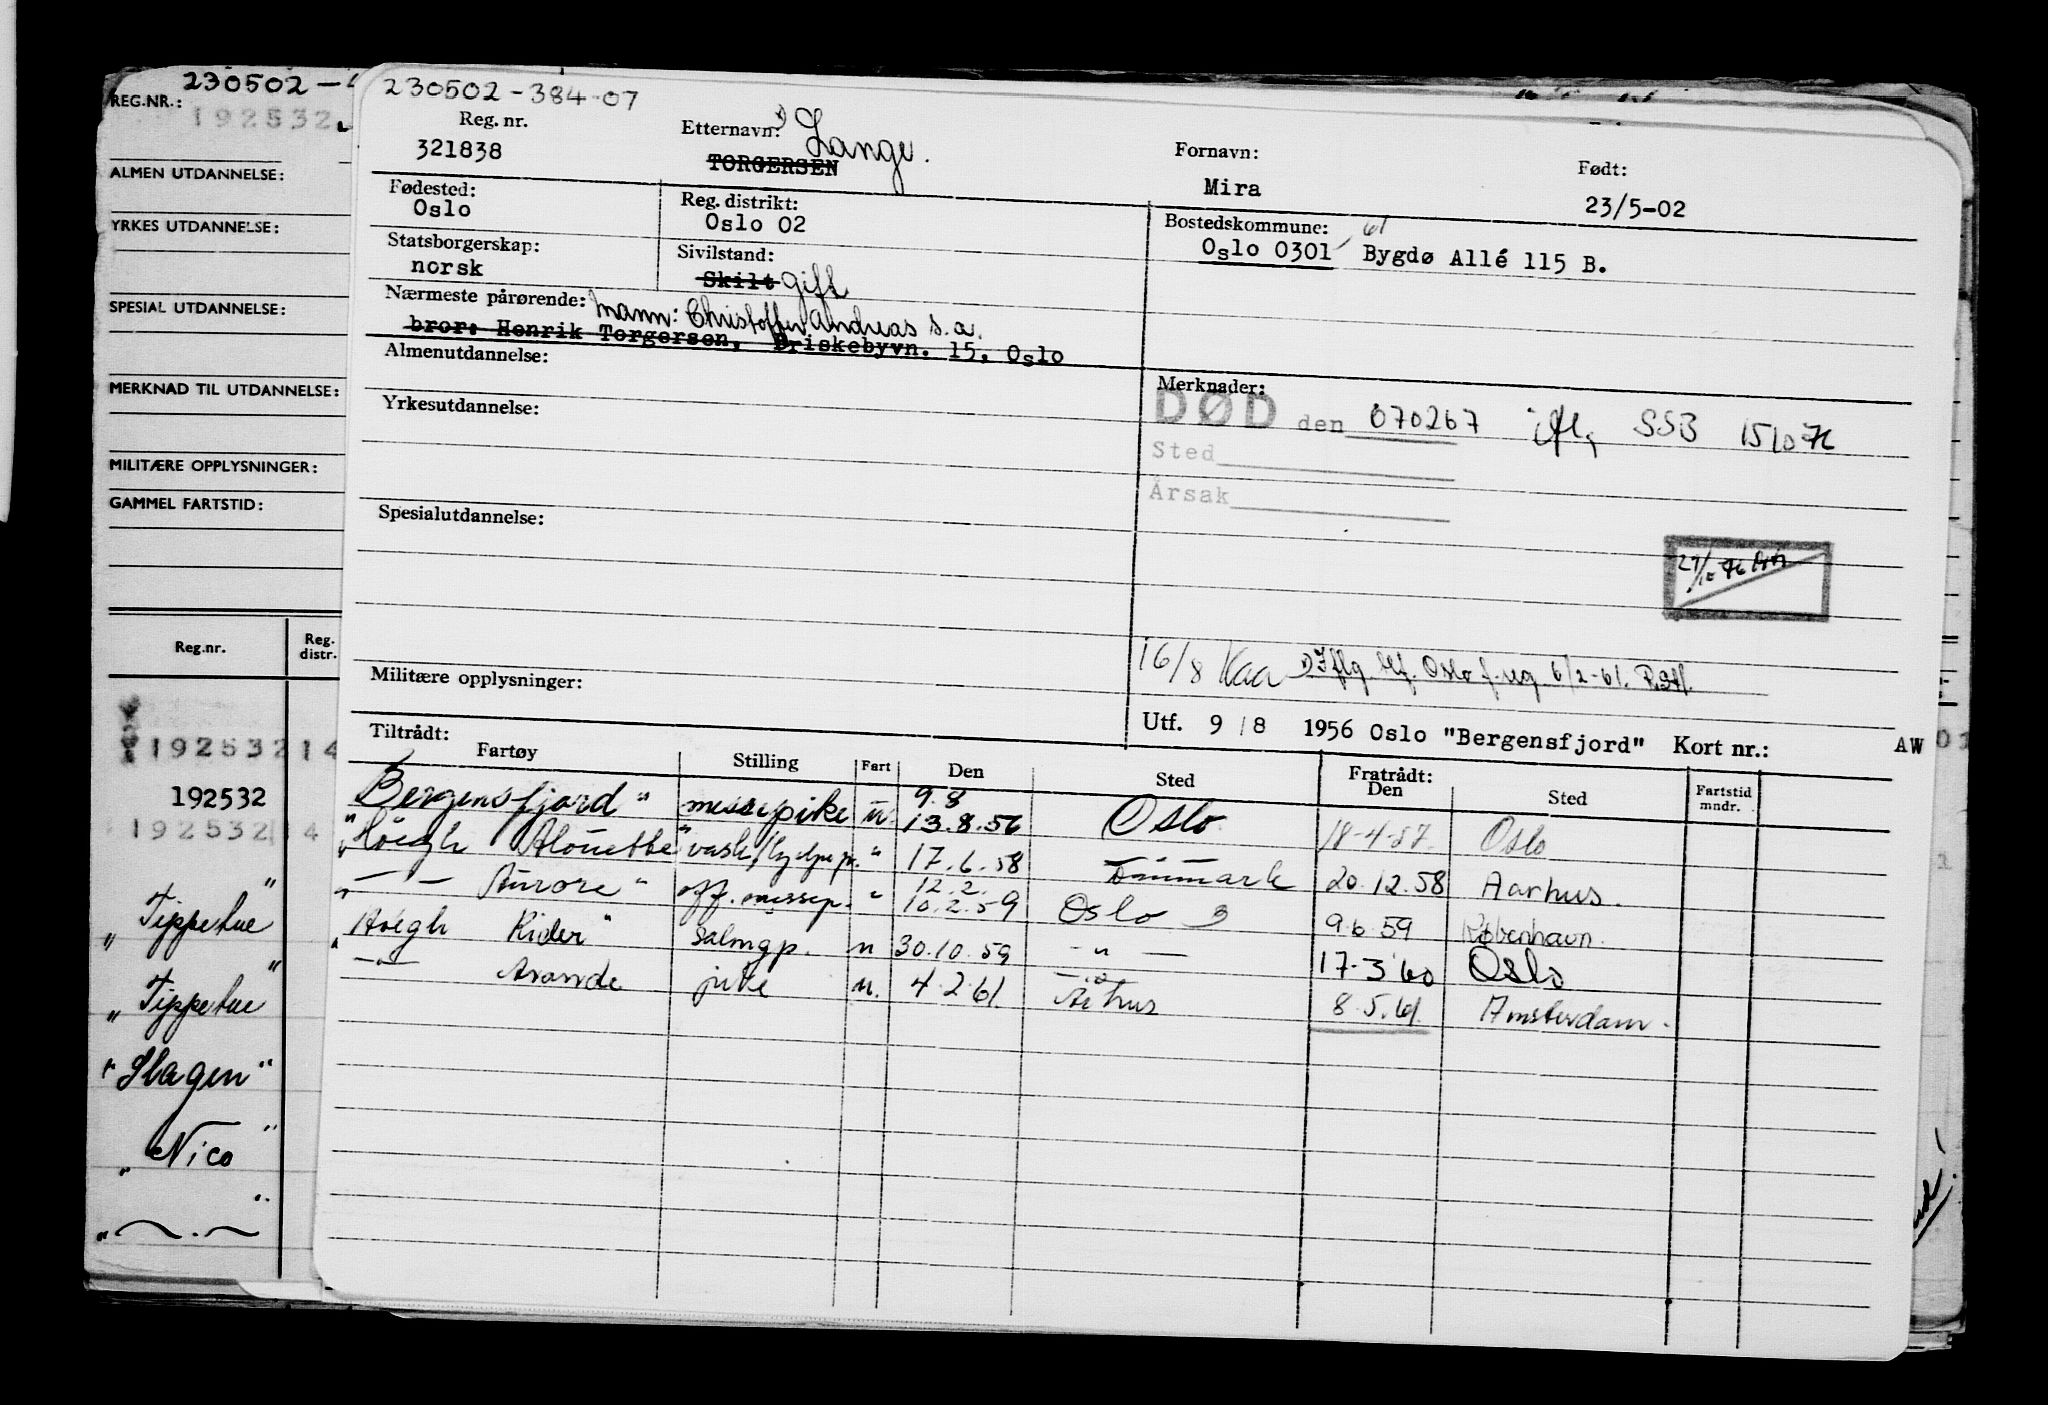 230502-384-07
Reg. nr.
321838
Etternavn:
1) Lange.
TORGERSEN
Fornavn:
Mira
Født:
23/5-02
Fødested:
Oslo
Reg. distrikt:
Oslo 02
Bostedskommune:
Oslo 0301 61 Bygdø Allé 115 B.
Statsborgerskap:
norsk
Sivilstand:
Skilt gift
Nærmeste pårørende: mann: Christoffer Andreas s.a.
bror: Henrik Torgersen, Briskebyvn. 15, Oslo
Almenutdannelse:
Yrkesutdannelse:
Spesialutdannelse:
Militære opplysninger:
Merknader:
DØD den 070267 ifl. SSB
Sted
Årsak
16/8 Kaa 1) Iflg. Oslo f. reg 6/2-61.
Utf. 9/8 1956 Oslo "Bergensfjord" Kort nr.: AW
Tiltrådt:
Fartøy Stilling Fart Den Sted Fratrådt: Den Sted Fartstid mndr.
Bergensfjord" messepike u. 9.8 13.8.56 Oslo 18-4-57. Oslo
"Höegh Alouette" vask/hjelpep. " 17.6.58 Danmark 20.12.58 Aarhus.
" — " — Aurore" off. messep. " 12.2. 10.2.59 Oslo 9.6.59 København.
"Höegh Rider" salongp. u 30.10.59 — " — 17.3.60 Oslo
— " — Aronde pike u. 4.2.61. Århus 8.5.61. Amsterdam.
230502-
REG.NR.:
192532
ALMEN UTDANNELSE:
YRKES UTDANNELSE:
SPESIAL UTDANNELSE:
MERKNAD TIL UTDANNELSE:
MILITÆRE OPPLYSNINGER:
GAMMEL FARTSTID:
Reg.nr. Reg. distr.
192532 14
192532
192532 14
"Tippetue"
"Tippetue"
"Slagen"
"Nico"